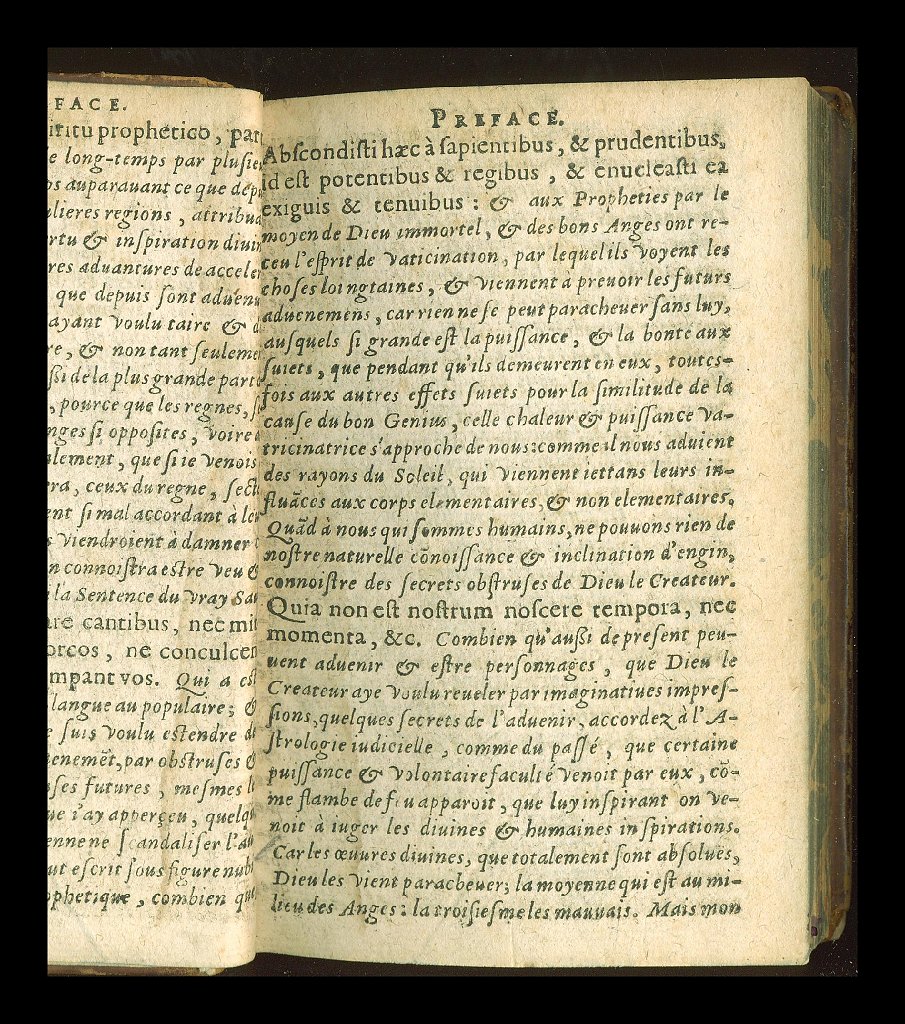 FACE.
iritu prophetico, par
e long-temps par plusie
ps auparauant ce que dep
ulieres regions, attribua
rtu & inspiration diuin
res aduantures de acceler
que depuis sont aduenu
ayant voulu taire & d
re, & non tant seulemen
ßi de la plus grande parti
, pource que les regnes, s
nges si opposites, voire d
alement, que si ie venois
rra, ceux du regne, secte
ent si mal accordant à leu
s viendroient à damner
n connoistra estre veu &
la Sentence du vray Sau
are cantibus, nec mit
orcos, ne conculcen
mpant vos. Qui a est
langue au populaire; &
e suis voulu estendre d
enemẽt, par obstruses &
ses futures, mesmes l
ue i'ay apperçeu, quelqu
ennene scandaliser l'au
ut escrit sous figure nub
ophetique, combien que
PREFACE.
Abscondisti hæc à sapientibus, & prudentibus,
id est potentibus & regibus, & enucleasti ea
exiguis & tenuibus: & aux Propheties par le
moyen de Dieu immortel, & des bons Anges ont re-
ceu l'esprit de vaticination, par lequel ils voyent les
choses loingtaines, & viennent a preuoir les futurs
aduenemens, car rien ne se peut paracheuer sans luy,
ausquels si grande est la puissance, & la bonte aux
suiets, que pendant qu'ils demeurent en eux, toutes-
fois aux autres effets suiets pour la similitude de la
cause du bon Genius, celle chaleur & puissance va-
tricinatrice s'approche de nous: comme il nous aduient
des rayons du Soleil, qui viennent iettans leurs in-
fluãces aux corps elementaires, & non elementaires.
Quãd à nous qui sommes humains, ne pouuons rien de
nostre naturelle cõnoissance & inclination d'engin,
connoistre des secrets obstruses de Dieu le Createur.
Quia non est nostrum noscere tempora, nec
momenta, &c. Combien qu'außi de present peu-
uent aduenir & estre personnages, que Dieu le
Createur aye voulu reueler par imaginatiues impres-
sions, quelques secrets de l'aduenir, accordez à l'A-
strologie iudicielle, comme du passé, que certaine
puissance & volontaire faculté venoit par eux, cõ-
me flambe de feu apparoit, que luy inspirant on ve-
noit à iuger les diuines & humaines inspirations.
Car les œuures diuines, que totalement sont absoluës,
Dieu les vient paracheuer; la moyenne qui est au mi-
lieu des Anges: la troisiesme les mauuais. Mais mon